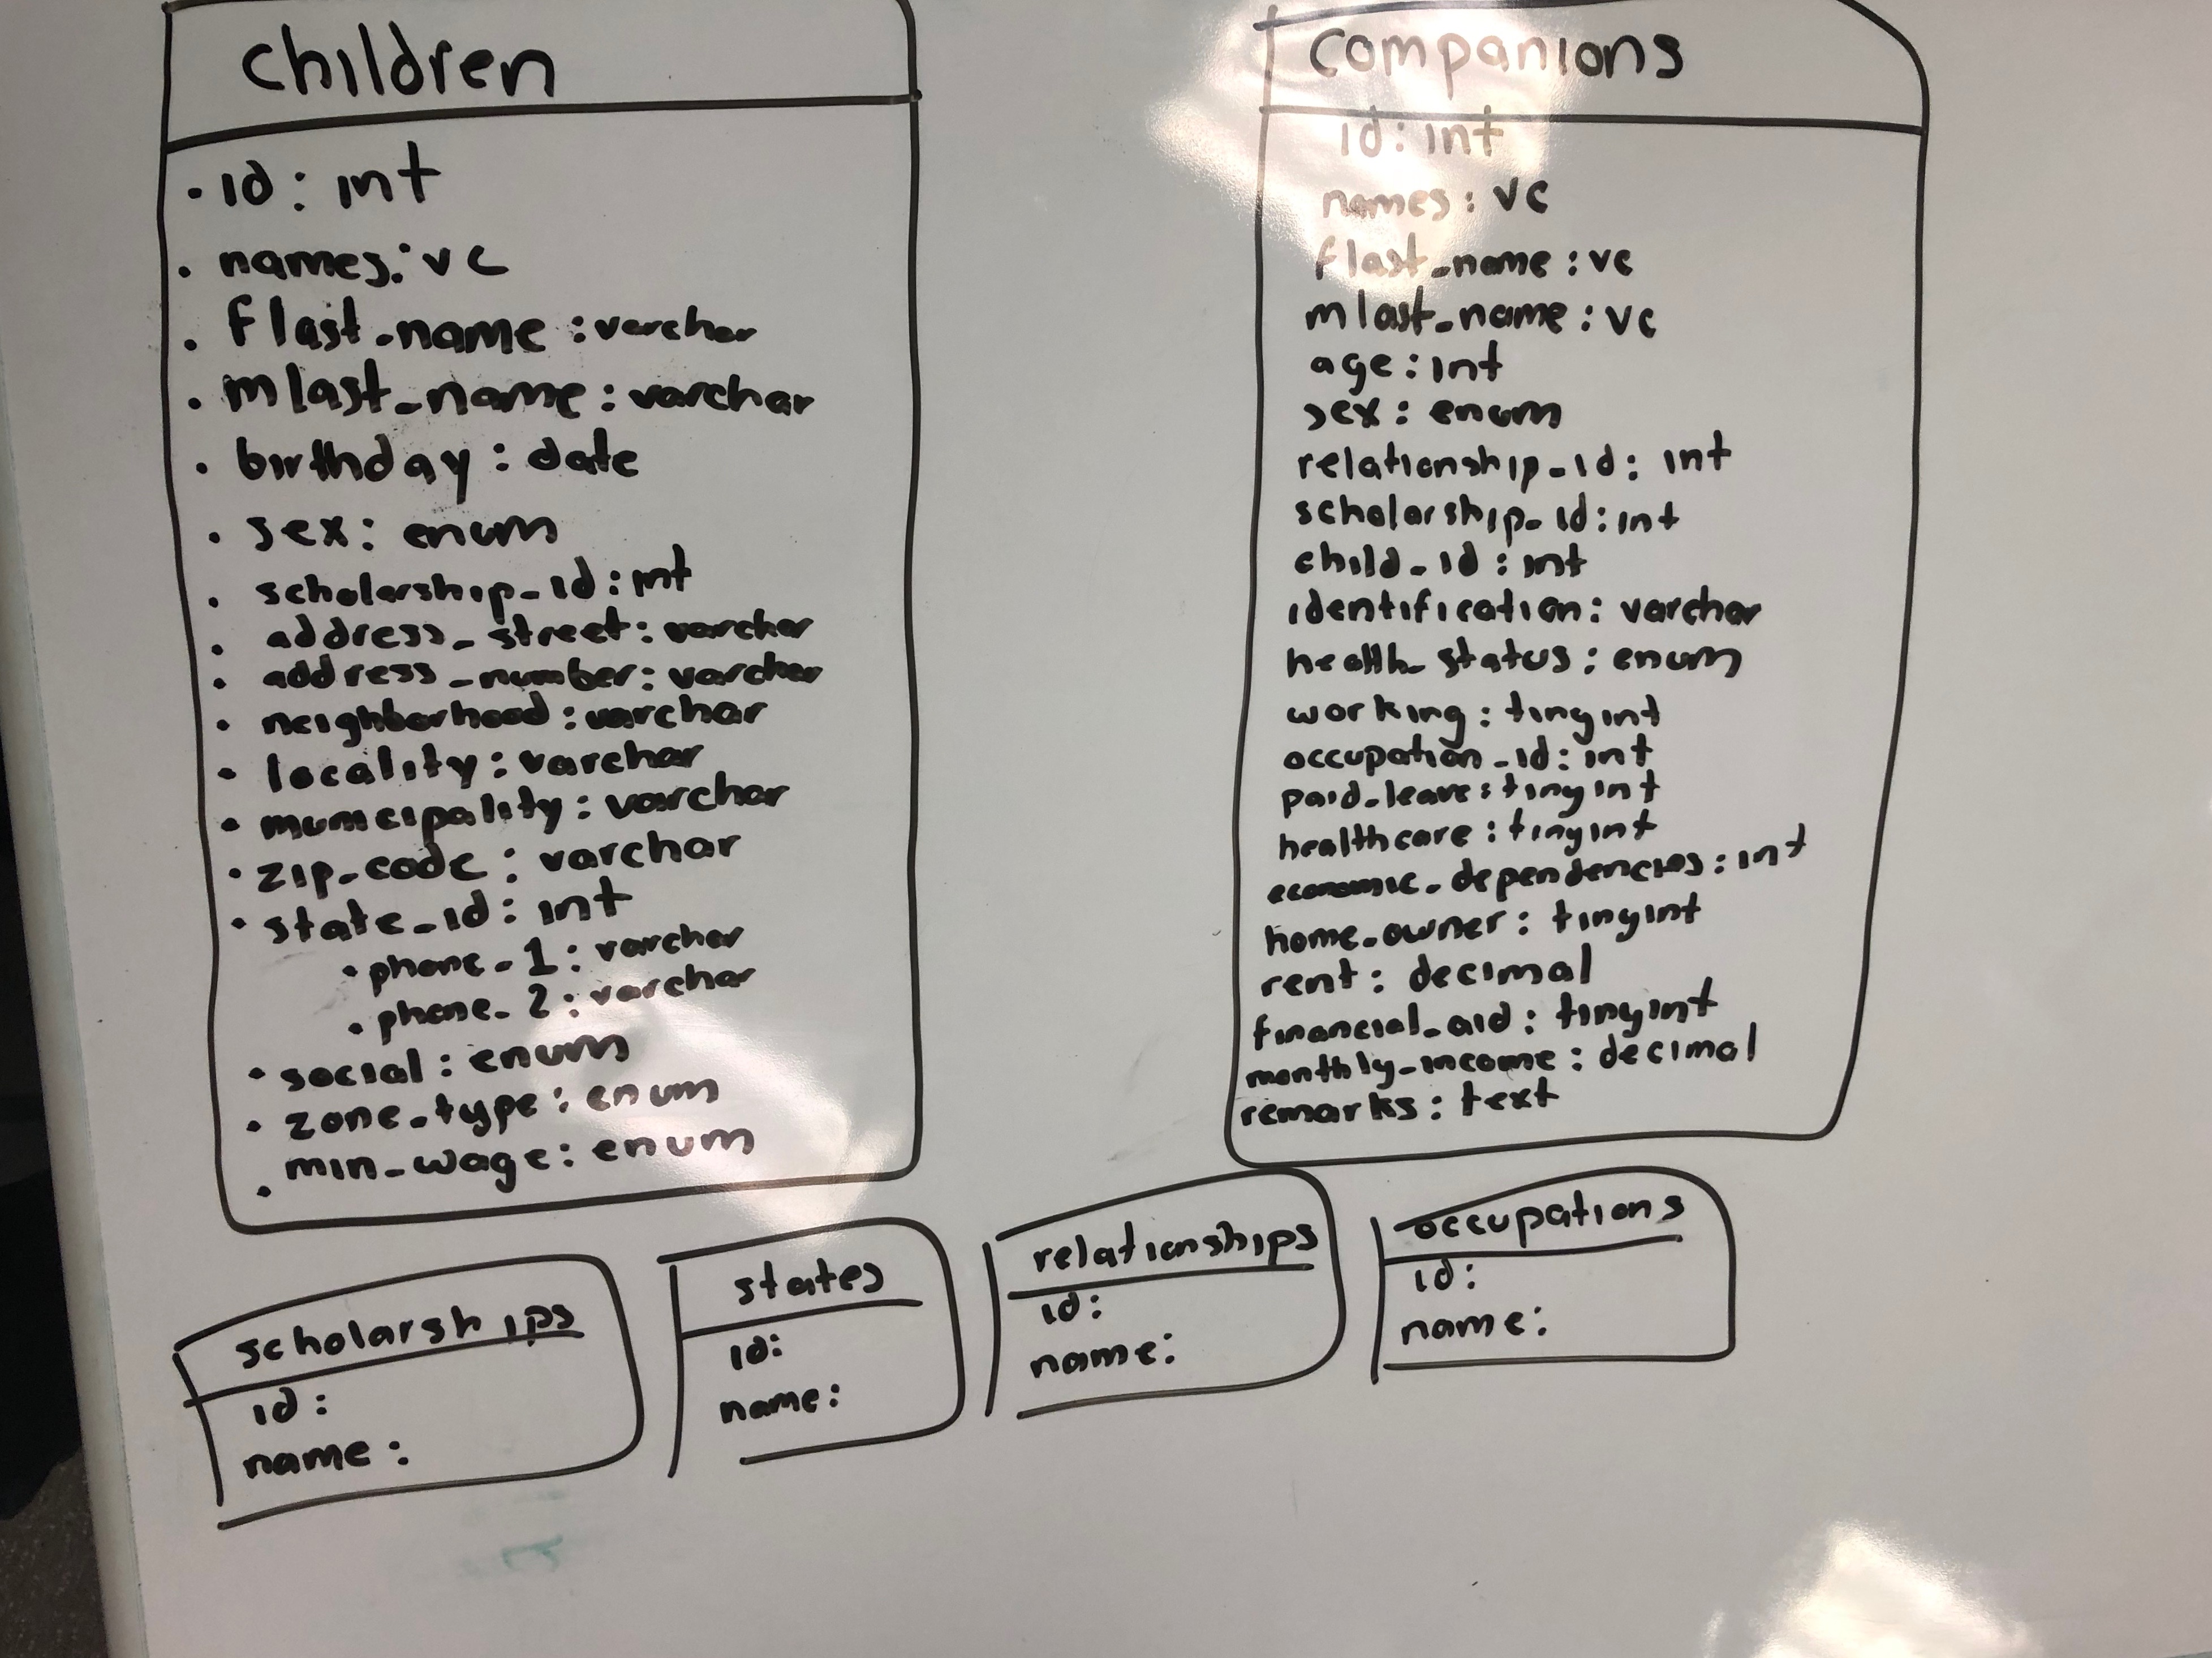 children
• id: int
• names: vc
• flast_name: varchar
• mlast_name: varchar
• birthday: date
• sex: enum
• scholarship_id: int
• address_street: varchar
• address_number: varchar
• neighborhood: varchar
• locality: varchar
• municipality: varchar
• zip_code: varchar
• state_id: int
• phone_1: varchar
• phone_2: varchar
• social: enum
• zone_type: enum
• min_wage: enum
companions
id: int
names: vc
flast_name: vc
mlast_name: vc
age: int
sex: enum
relationship_id: int
scholarship_id: int
child_id: int
identification: varchar
health_status: enum
working: tinyint
occupation_id: int
paid_leave: tinyint
healthcare: tinyint
economic_dependencies: int
home_owner: tinyint
rent: decimal
financial_aid: tinyint
monthly_income: decimal
remarks: text
scholarships
id:
name:
states
id:
name:
relationships
id:
name:
occupations
id:
name: